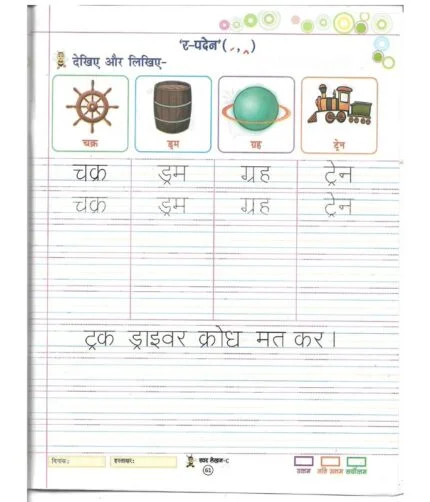 'र-पदेन' (◌्र, ◌्र)
देखिए और लिखिए-
चक्र ड्रम ग्रह ट्रेन
चक्र ड्रम ग्रह ट्रेन
चक्र ड्रम ग्रह ट्रेन
ट्रक ड्राइवर क्रोध मत कर।
दिनांक: हस्ताक्षर: स्वर लेखन-C
61
उत्तम अति उत्तम सर्वोत्तम